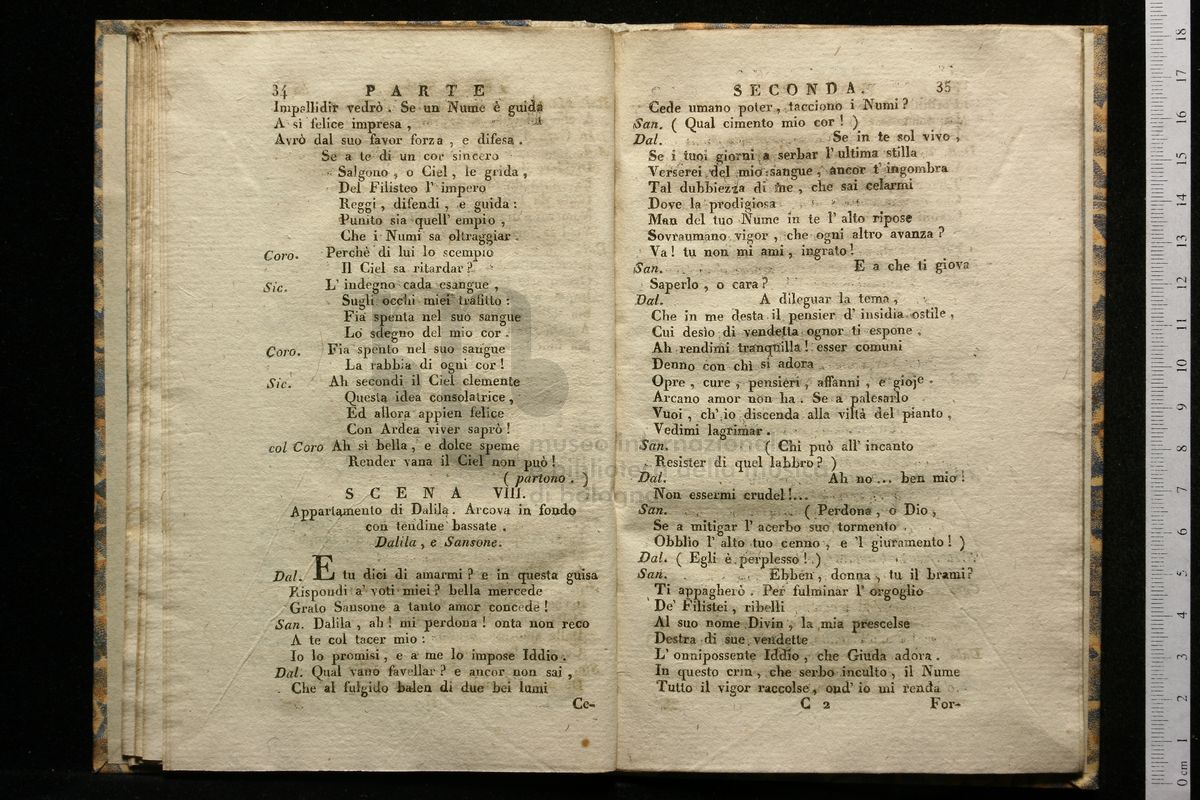 34 PARTE
Impallidir vedrò. Se un Nume è guida
A sì felice impresa,
Avrò dal suo favor forza, e difesa.
Se a te di un cor sincero
Salgono, o Ciel, le grida,
Del Filisteo l' impero
Reggi, difendi, e guida:
Punito sia quell' empio,
Che i Numi sa oltraggiar.
Coro. Perchè di lui lo scempio
Il Ciel sa ritardar?
Sic. L' indegno cada esangue,
Sugli occhi miei trafitto:
Fia spenta nel suo sangue
Lo sdegno del mio cor.
Coro. Fia spento nel suo sangue
La rabbia di ogni cor!
Sic. Ah secondi il Ciel clemente
Questa idea consolatrice,
Ed allora appien felice
Con Ardea viver saprò!
col Coro Ah sì bella, e dolce speme
Render vana il Ciel non può!
( partono. )
SCENA VIII.
Appartamento di Dalila. Arcova in fondo
con tendine bassate.
Dalila, e Sansone.
Dal. E tu dici di amarmi? e in questa guisa
Rispondi a' voti miei? bella mercede
Grato Sansone a tanto amor concede!
San. Dalila, ah! mi perdona! onta non reco
A te col tacer mio:
Io lo promisi, e a me lo impose Iddio.
Dal. Qual vano favellar? e ancor non sai,
Che al fulgido balen di due bei lumi
Ce-
SECONDA. 35
Cede umano poter, tacciono i Numi?
San. ( Qual cimento mio cor! )
Dal. Se in te sol vivo,
Se i tuoi giorni a serbar l' ultima stilla
Verserei del mio sangue, ancor t' ingombra
Tal dubbiezza di me, che sai celarmi
Dove la prodigiosa
Man del tuo Nume in te l' alto ripose
Sovraumano vigor, che ogni altro avanza?
Va! tu non mi ami, ingrato!
San. E a che ti giova
Saperlo, o cara?
Dal. A dileguar la tema,
Che in me desta il pensier d' insidia ostile,
Cui desìo di vendetta ognor ti espone.
Ah rendimi tranquilla! esser comuni
Denno con chi si adora
Opre, cure, pensieri, affanni, e gioje.
Arcano amor non ha. Se a palesarlo
Vuoi, ch' io discenda alla viltà del pianto,
Vedimi lagrimar.
San. ( Chi può all' incanto
Resister di quel labbro? )
Dal. Ah no... ben mio!
Non essermi crudel!...
San. ( Perdona, o Dio,
Se a mitigar l' acerbo suo tormento
Obblìo l' alto tuo cenno, e 'l giuramento! )
Dal. ( Egli è perplesso! )
San. Ebben, donna, tu il brami?
Ti appagherò. Per fulminar l' orgoglio
De' Filistei, ribelli
Al suo nome Divin, la mia prescelse
Destra di sue vendette
L' onnipossente Iddio, che Giuda adora.
In questo crin, che serbo inculto, il Nume
Tutto il vigor raccolse, ond' io mi renda
C 2 For-
museo internazionale
e biblioteca della musica
di bologna